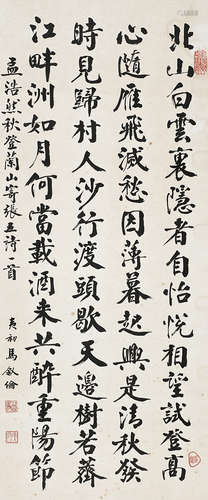 北山白雲裏隱者自怡悅相望試登高
心隨雁飛滅愁因薄暮起興是清秋發
時見歸村人沙行渡頭歇天邊樹若薺
江畔洲如月何當載酒来共醉重陽節
孟浩然秋登蘭山寄張五詩一首
夷初馬敘倫